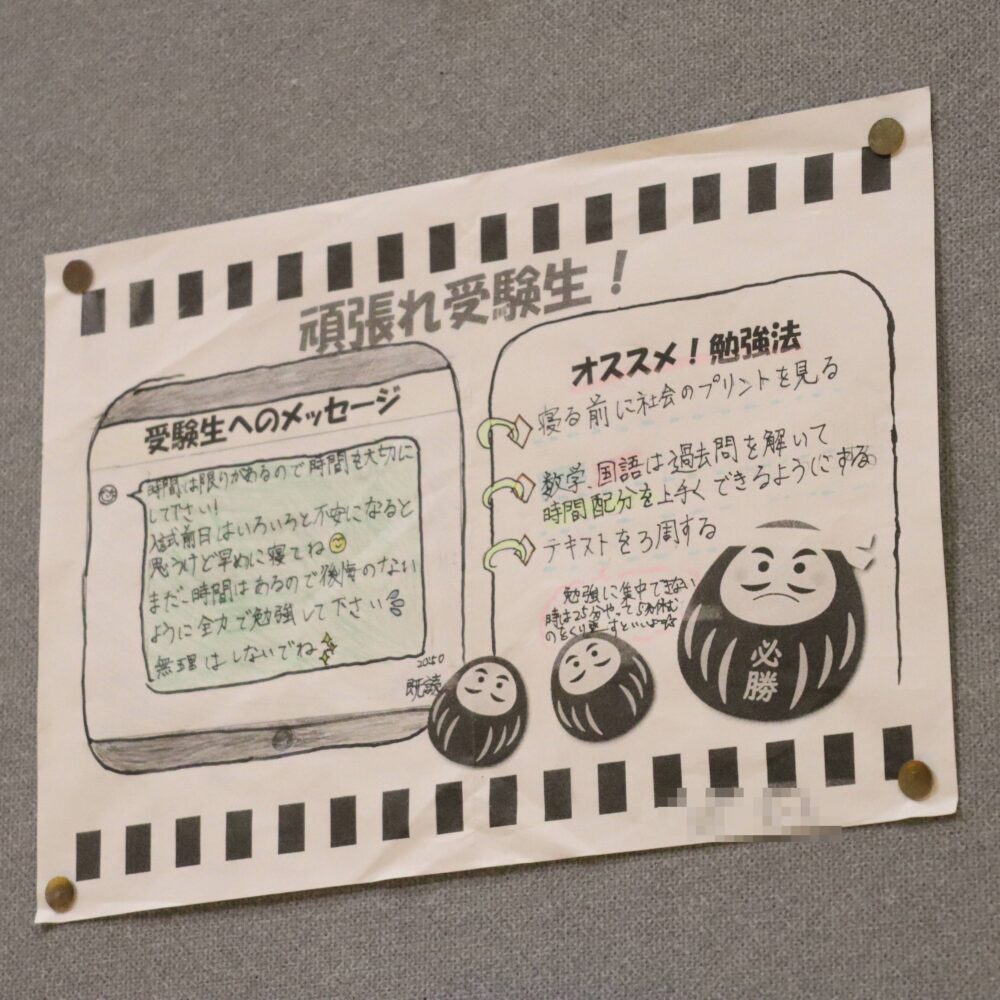 頑張れ受験生!
受験生へのメッセージ
時間は限りがあるので時間を大切に
して下さい!
入試前日はいろいろと不安になると
思うけど早めに寝てね
まだ時間はあるので後悔のない
ように全力で勉強して下さい
無理はしないでね
2050
既読
オススメ!勉強法
寝る前に社会のプリントを見る
数学、国語は過去問を解いて
時間配分を上手くできるようにする
テキストを3周する
勉強に集中できない
時は25分やって5分休む
のをくり返すといいよ
必勝